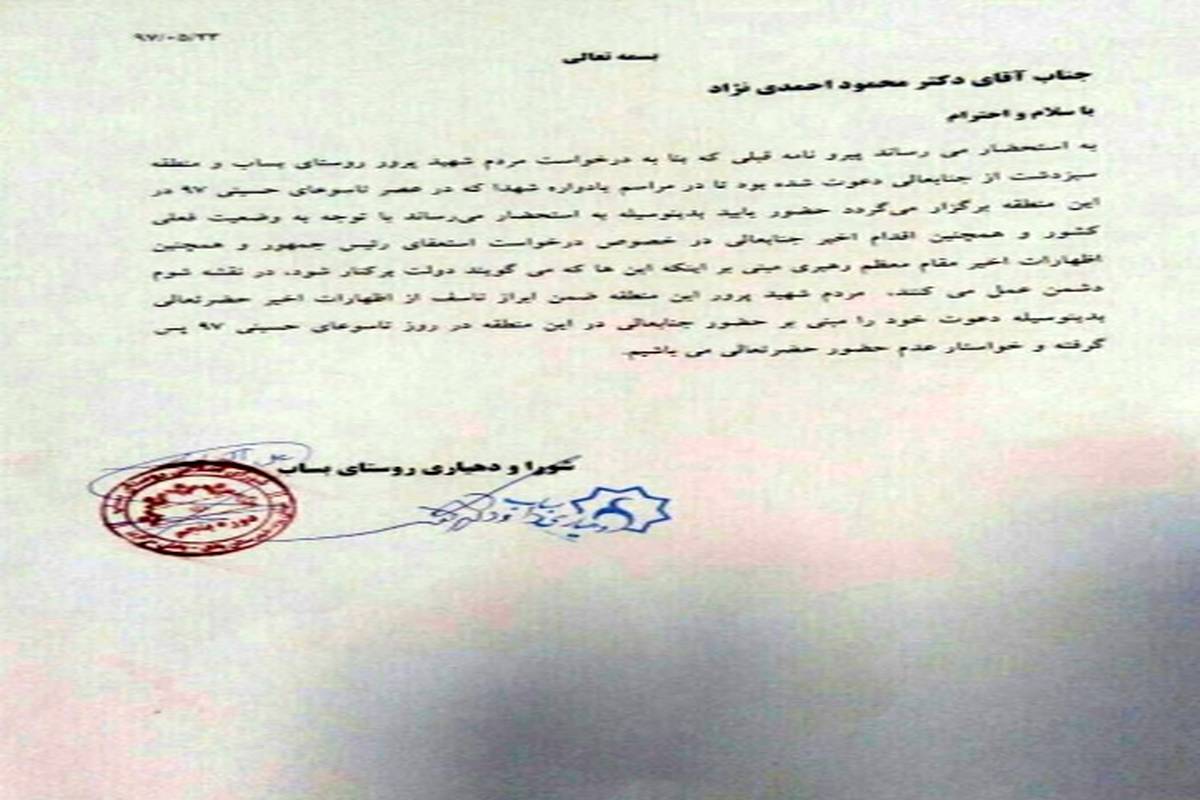 ۹۷/۰۵/۲۳
بسمه تعالی
جناب آقای دکتر محمود احمدی نژاد
با سلام و احترام
به استحضار می رساند پیرو نامه قبلی که بنا به درخواست مردم شهید پرور روستای بساب و منطقه
سبزدشت از جنابعالی دعوت شده بود تا در مراسم یادواره شهدا که در عصر تاسوعای حسینی ۹۷ در
این منطقه برگزار می‌گردد حضور یابید بدینوسیله به استحضار می‌رساند با توجه به وضعیت فعلی
کشور و همچنین اقدام اخیر جنابعالی در خصوص درخواست استعفای رئیس جمهور و همچنین
اظهارات اخیر مقام معظم رهبری مبنی بر اینکه این ها که می گویند دولت برکنار شود، در نقشه شوم
دشمن عمل می کنند، مردم شهید پرور این منطقه ضمن ابراز تاسف از اظهارات اخیر حضرتعالی
بدینوسیله دعوت خود را مبنی بر حضور جنابعالی در این منطقه در روز تاسوعای حسینی ۹۷ پس
گرفته و خواستار عدم حضور حضرتعالی می باشیم.
شورا و دهیاری روستای بساب
دوره پنجم